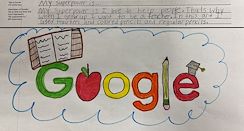 My superpower is
My superpower is I love to help people. That's why
when I grow up I want to be a teacher. In this art I
used markers and colored pencils and regular pencils.
Google